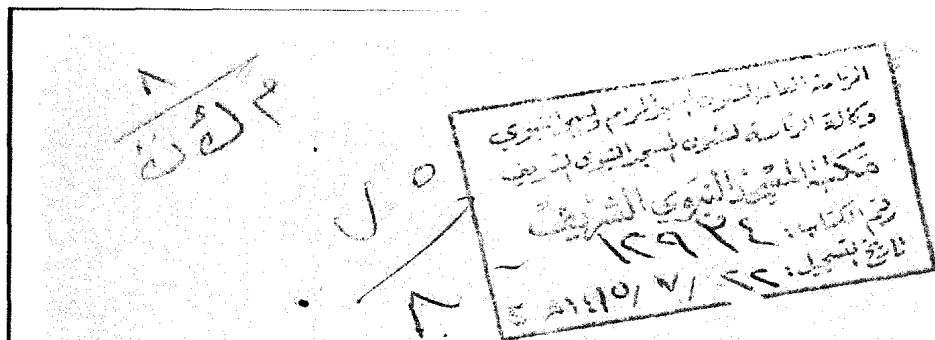 الرئاسة العامة لشؤون المسجد الحرام والمسجد النبوي
وكالة الرئاسة لشئون المسجد النبوي الشريف
مكتبة المسجد النبوي الشريف
رقم الكتاب: ١٢٩٣٤
تاريخ التسجيل: ٢٢ / ٧ / ١٤١٥هـ
٨